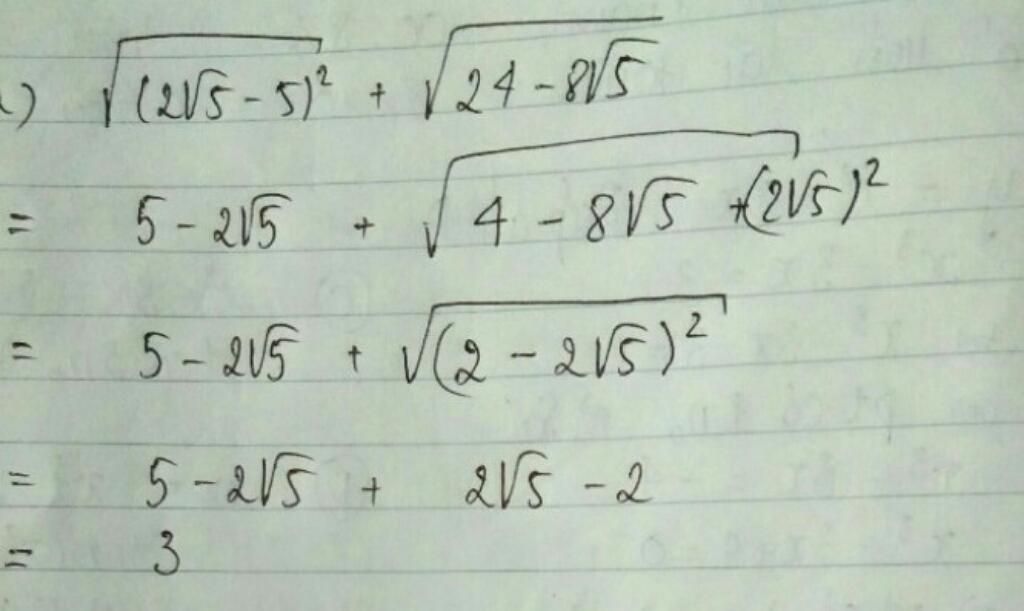 ) √(2√5 - 5)² + √24 - 8√5
= 5 - 2√5 + √4 - 8√5 + (2√5)²
= 5 - 2√5 + √(2 - 2√5)²
= 5 - 2√5 + 2√5 - 2
= 3